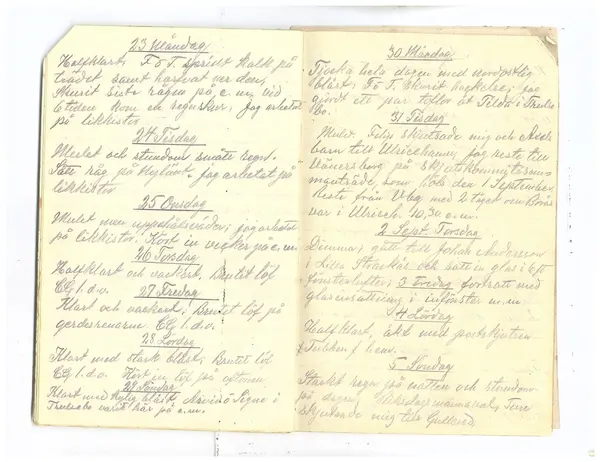 23 Måndag
Halfklart; F o T spridt kalk på
trädet samt harfvat ner den,
Skurit sista rågen på e.m. vid
5tiden kom en regnskur; Jag arbetat
på likkistor
24 Tisdag
Mulet och stundom smått regn.
Sått råg på Jag arbetat på
likkistor
25 Onsdag
Mulet men uppehållsväder; jag arbetat
på likkistor. Kört in vicker på e.m.
26 Torsdag
Halfklart och vackert, Brutet löf
C G l.d.v.
27 Fredag
Klart och vackert; Brutet löf på
gerdsrenarne. C G l.d.v.
28 Lördag
Klart med stark blåst; Brutet löf
C G l.d.v. Kört in löf på aftonen
29 Söndag
Klart med kylig blåst; Signe i
varit här på e.m.
30 Måndag
Tjocka hela dagen med nordostlig
blåst; F o T skurit hackelse; jag
gjordt ett par tofflor åt Tilda i
bo.
31 Tisdag
Mulet. Felix skjutsade mig och
barn till Ulricehamn; jag reste till
Vänersborg på
manuträde, som hölls den 1 September
Reste från Vbg med 2 tåget över Borås
var i Ulriceh. 10,30 e.m.
2 Sept. Torsdag
Dimma; gått till Johan Andersson
i Lilla och satt in glas i 6 st
fönsterlufter; 3 Fredag fortsatt med
glasinsättning i infönster m.m.
4 Lördag
Halfklart, åkt med postskjutsen
f hem.
5 Söndag
Starkt regn på natten och stundom
på dagen; Ture
skjutsade mig till Gullered